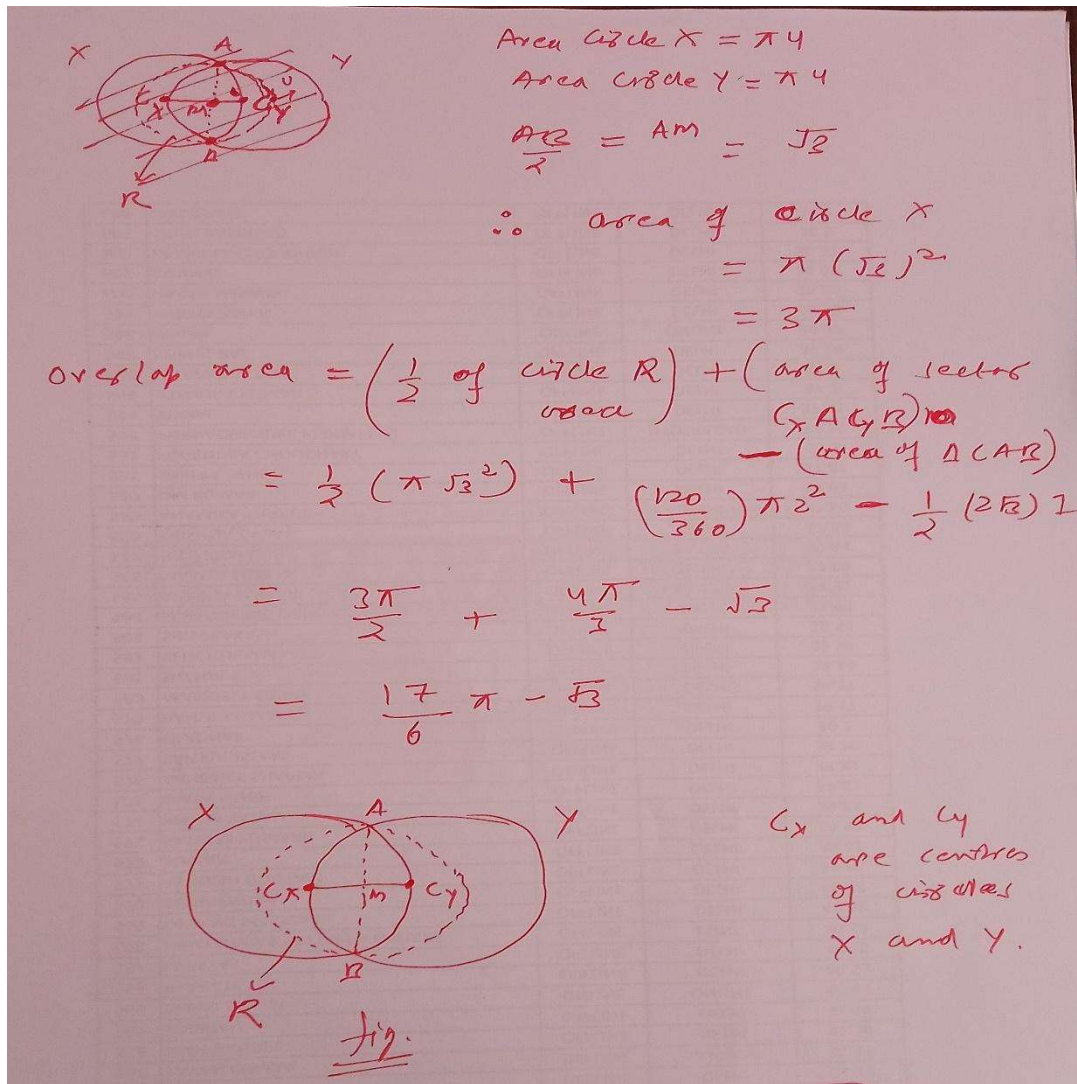 X A Y
M
B
R
Area circle X = π4
Area circle Y = π4
AB/2 = AM = √3
∴ area of circle X
= π (√3)²
= 3π
overlap area = (1/2 of circle R) + (area of sector
Cx A Cy B)
− (area of Δ CAB)
= 1/2 (π √3²) + (120/360) π 2² − 1/2 (2√3) 1
= 3π/2 + 4π/3 − √3
= 17/6 π − √3
X A Y
Cx M Cy
B
R
fig.
Cx and Cy
are centres
of circles
X and Y.